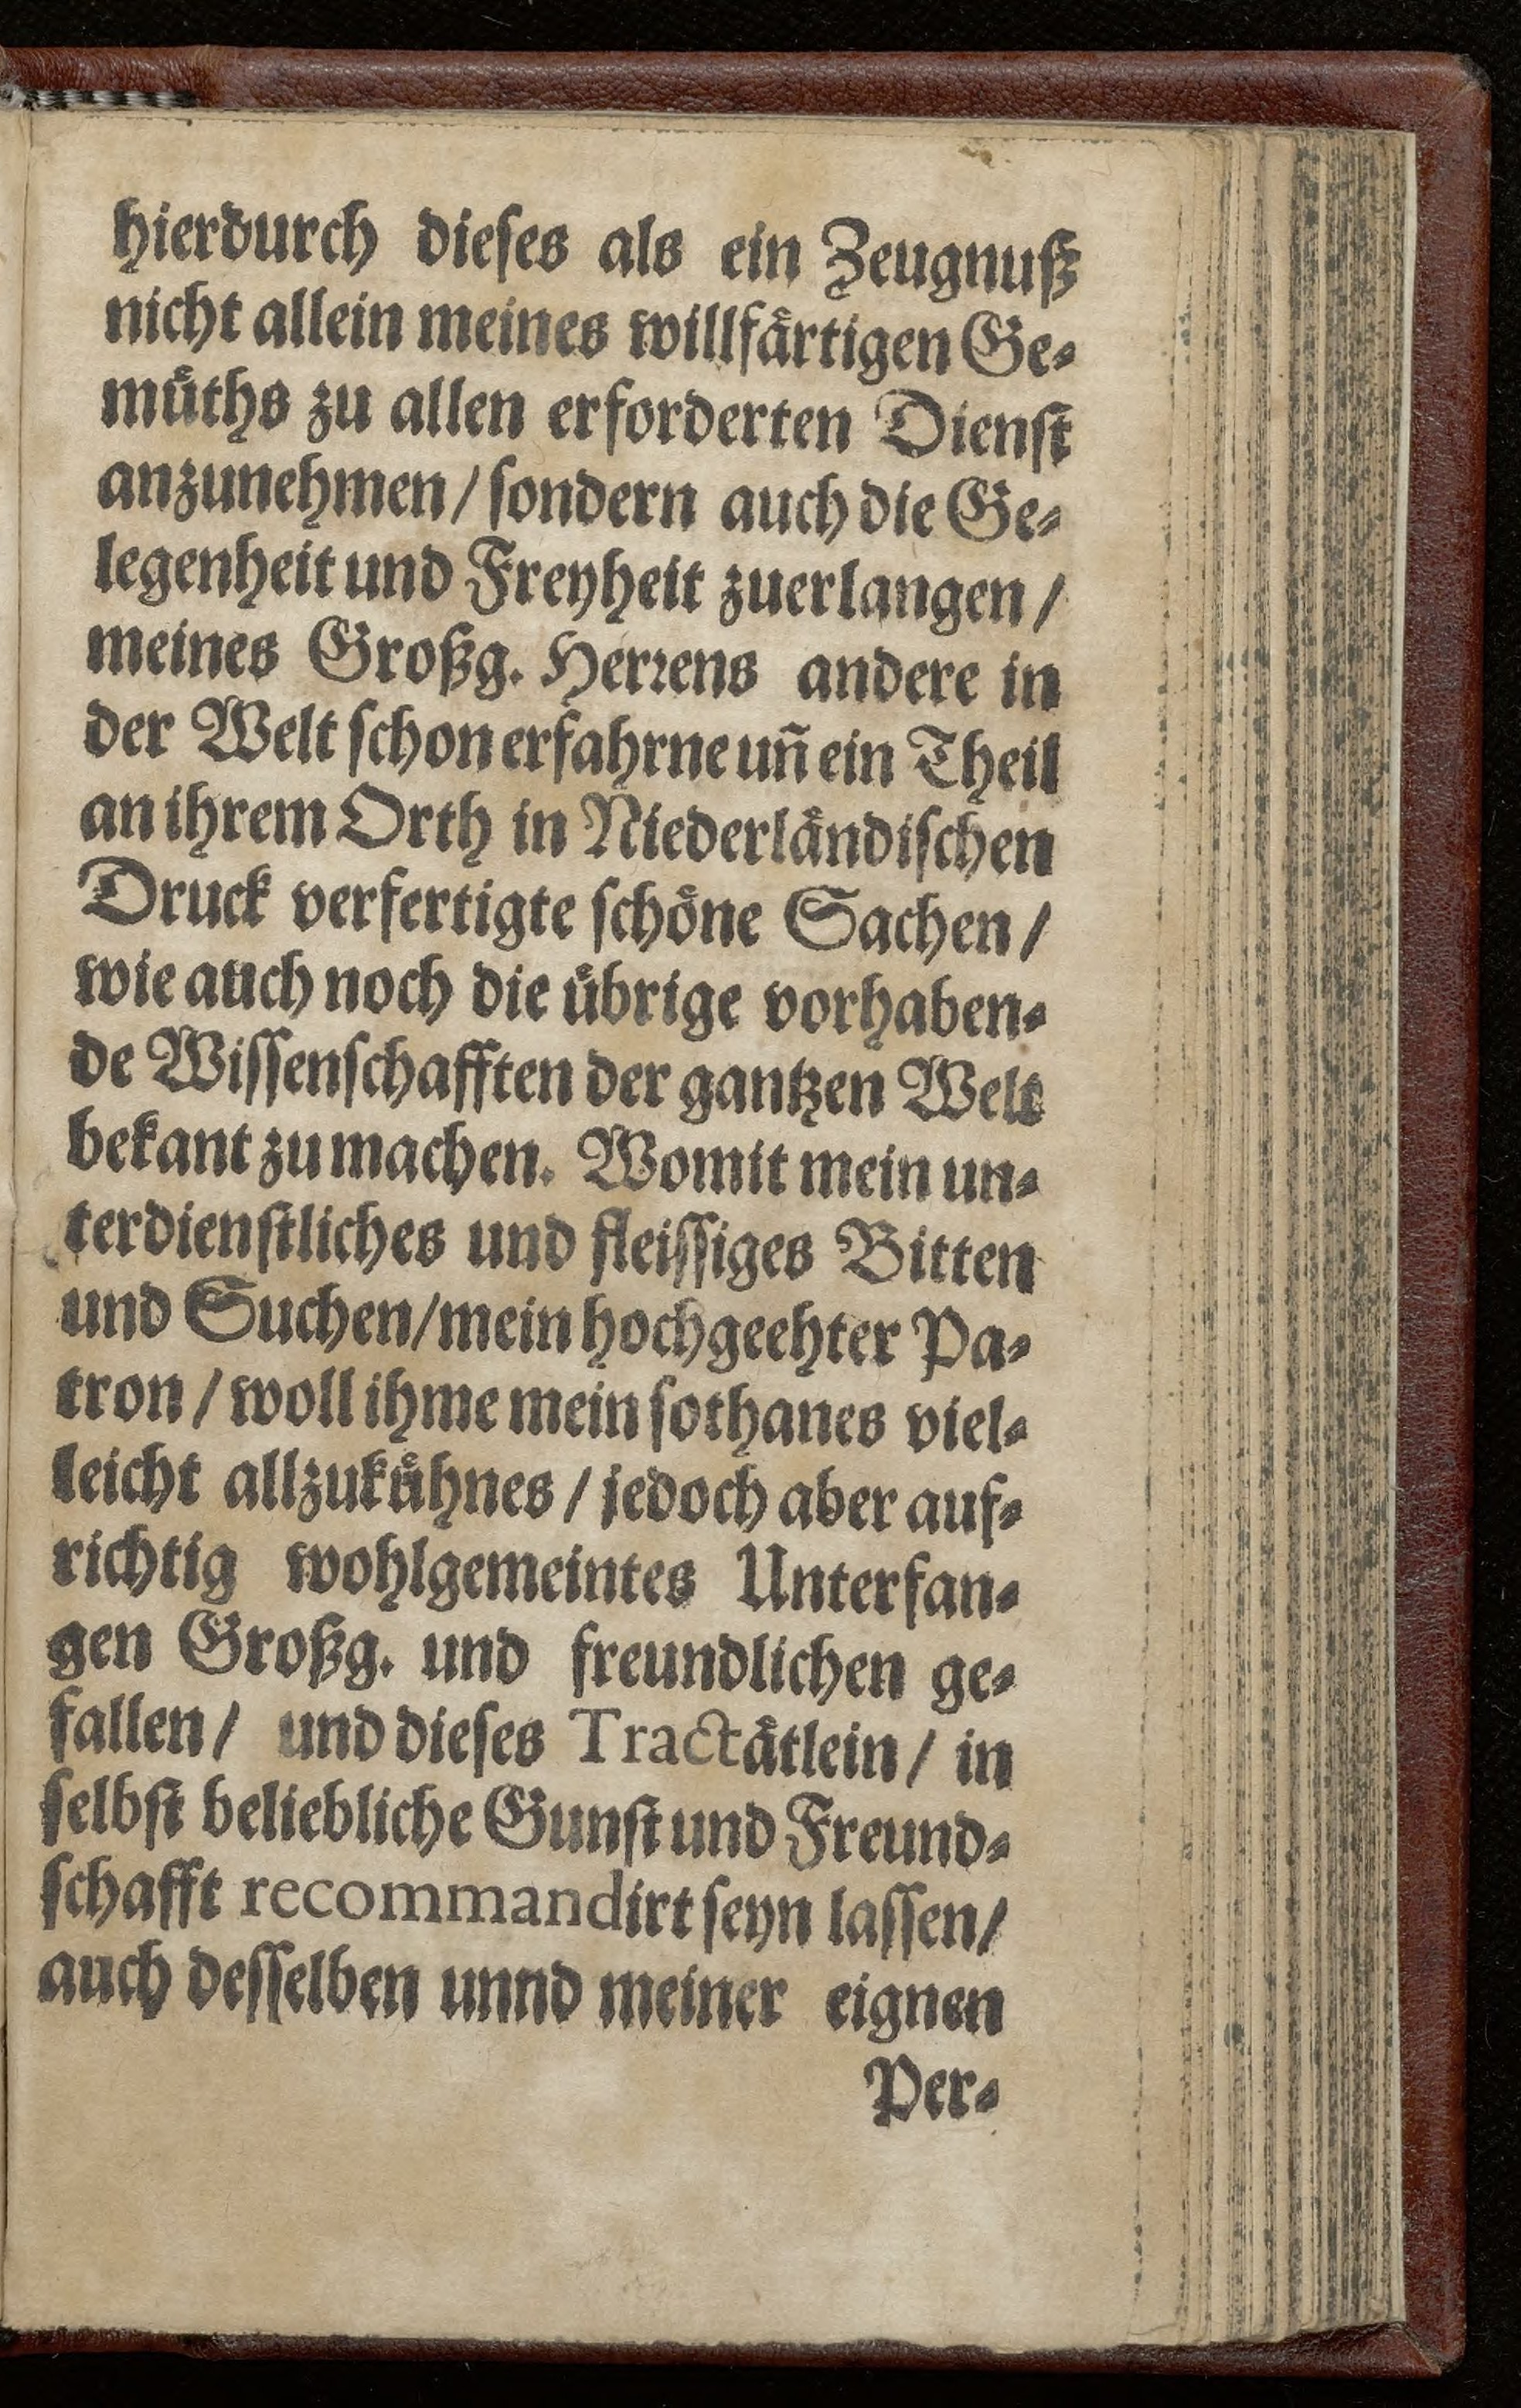 hierdurch dieſes als ein Zeugnuß
nicht allein meines willfaͤrtigen Ge⸗
muͤths zu allen erforderten Dienſt
anzunehmen / ſondern auch die Ge⸗
legenheit und Freyheit zuerlangen /
meines Großg. Herꝛens andere in
der Welt ſchon erfahrne uñ ein Theil
an ihrem Orth in Niederlaͤndiſchen
Druck verfertigte ſchoͤne Sachen /
wie auch noch die uͤbrige vorhaben⸗
de Wiſſenſchafften der gantzen Welt
bekant zu machen. Womit mein un⸗
terdienſtliches und fleiſſiges Bitten
und Suchen/mein hochgeehter Pa⸗
tron / woll ihme mein ſothanes viel⸗
leicht allzukuͤhnes / jedoch aber auf⸗
richtig wohlgemeintes Unterfan⸗
gen Großg. und freundlichen ge⸗
fallen / und dieſes Tractaͤtlein / in
ſelbſt beliebliche Gunſt und Freund⸗
ſchafft recommandirt ſeyn laſſen /
auch deſſelben unnd meiner eignen
Per⸗